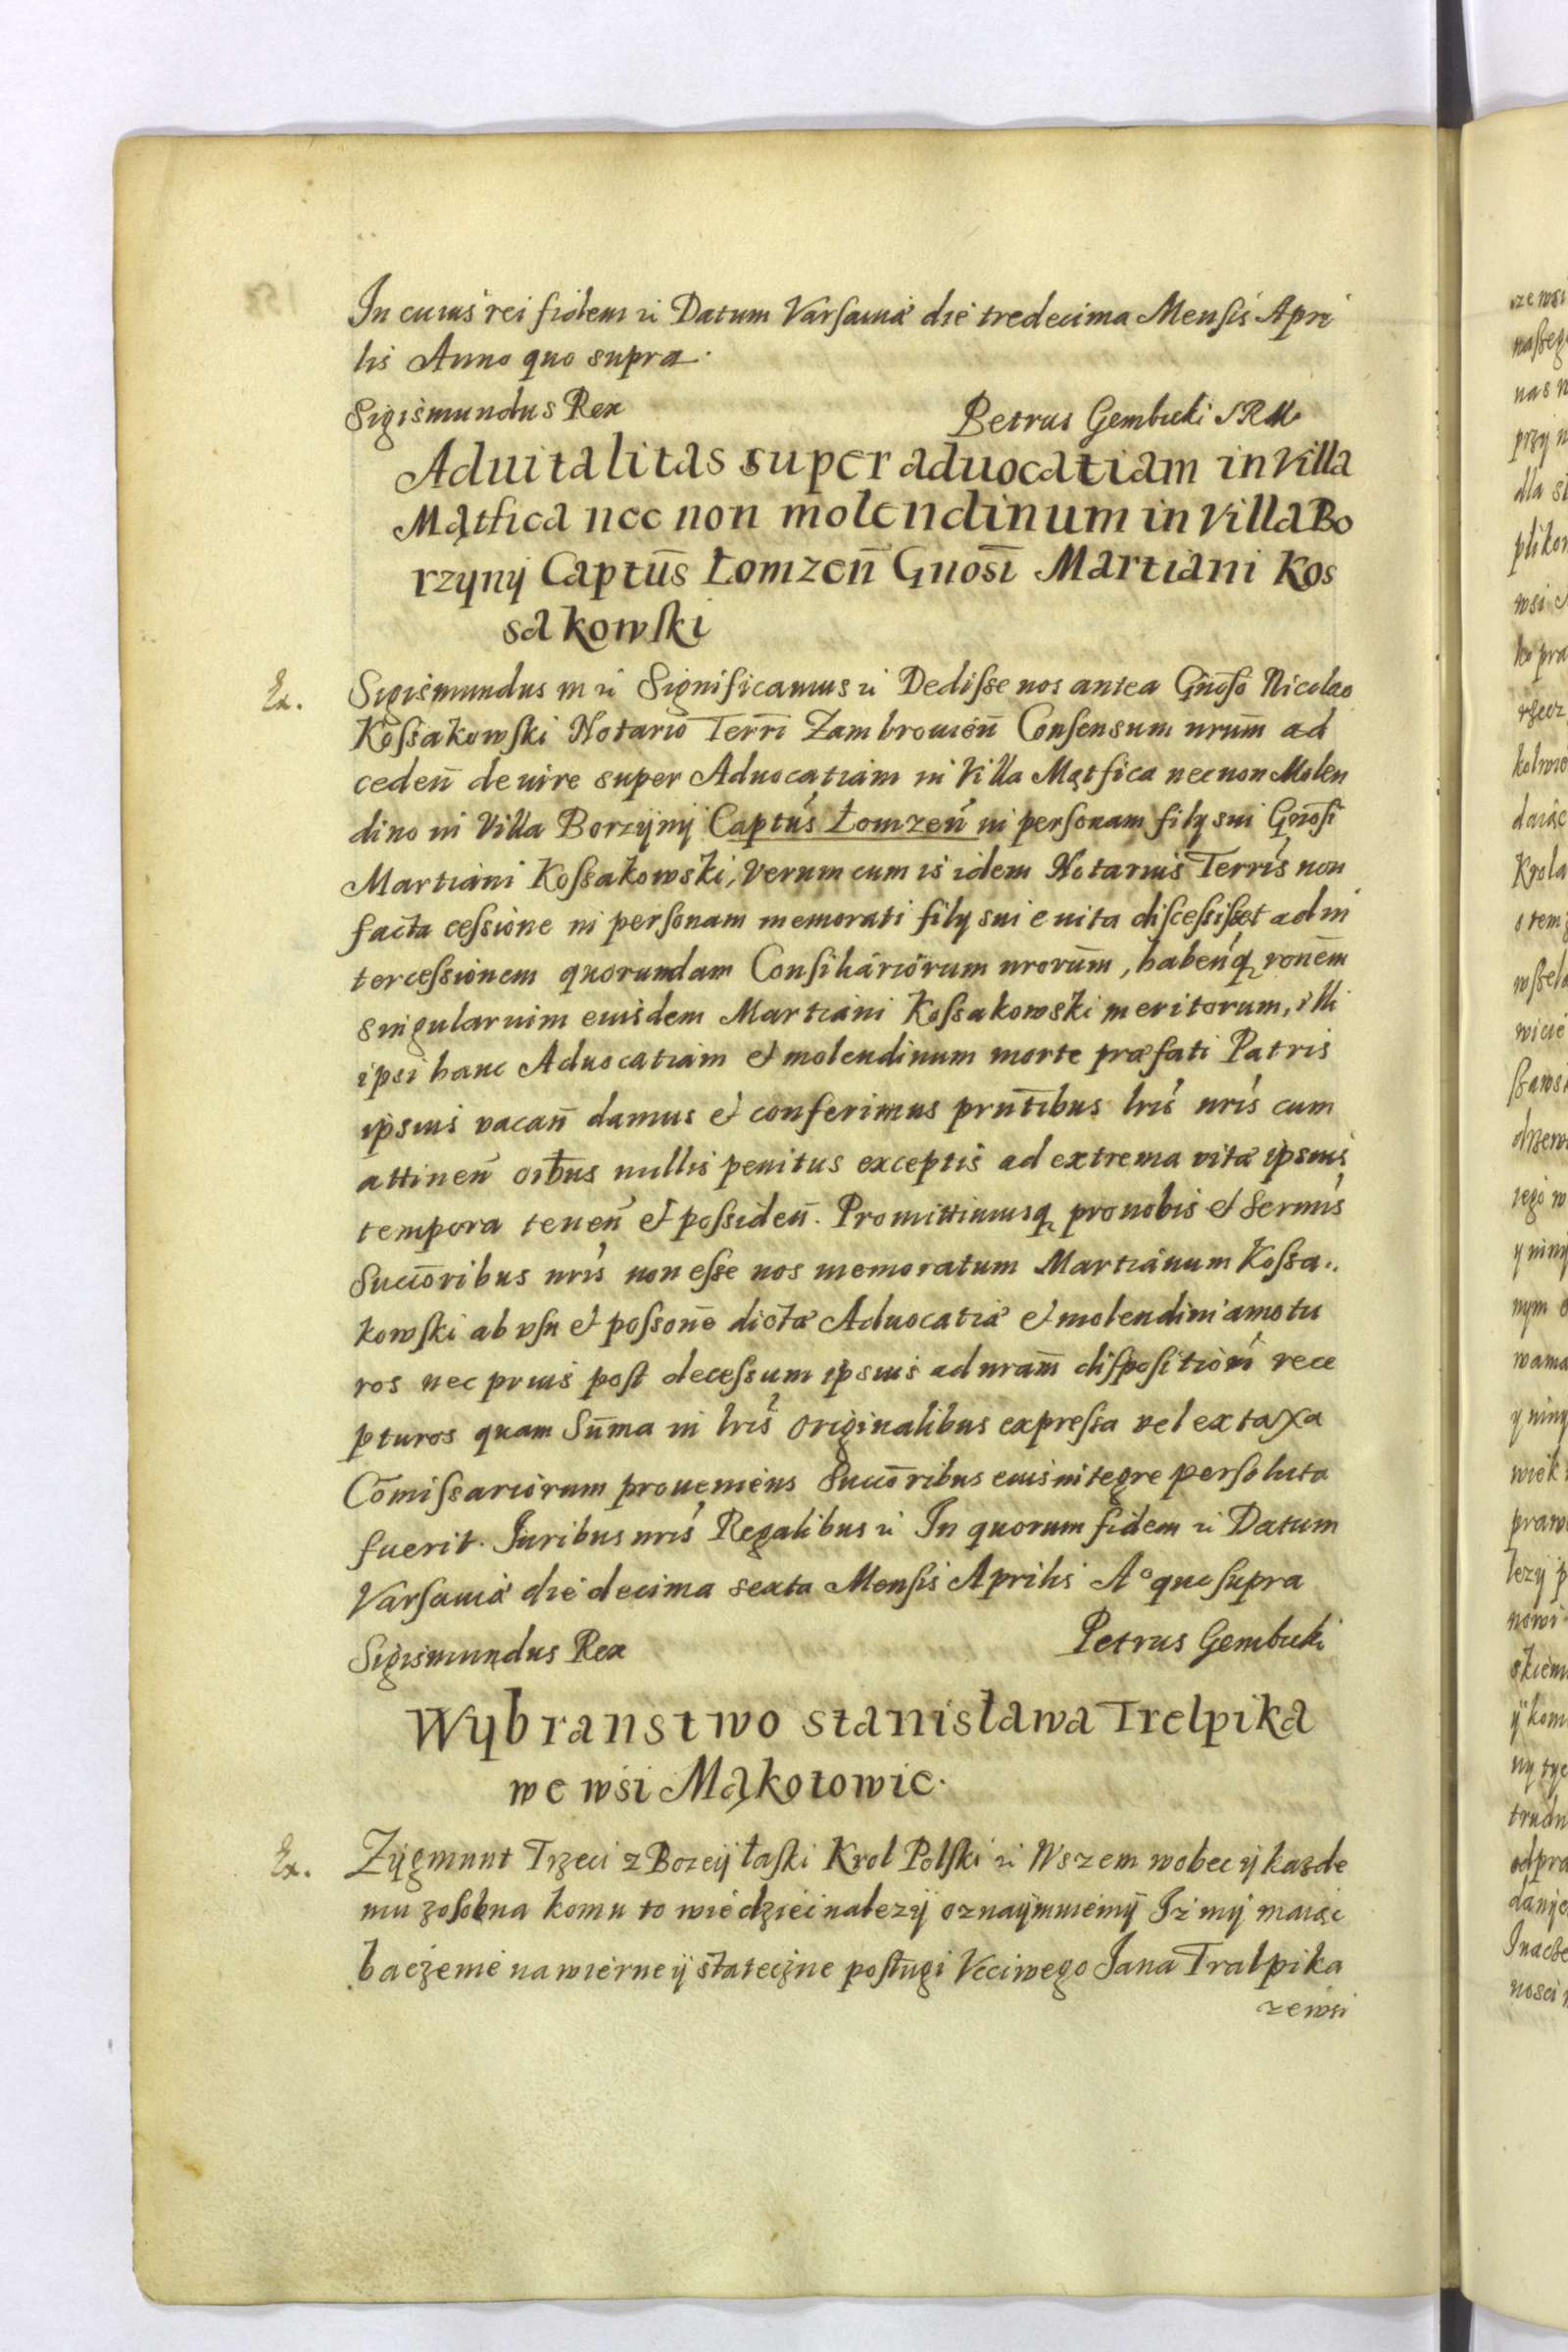 In cuius rei fidem ɾc Datum Varsauiæ die tredecima Mensis Apri
lis Anno quo supra.
Sigismundus Rex
Petrus Gembicki SRM
Aduitalitas super aduocatiam in villa
Mątfica nec non molendinum in villa Bo
rzyny Captūs Łomzen̄ Gnosī Martiani Kos
sakowſki
Ex.
Sigismundus III ɾc Significamus ɾc Dediſse nos antea Gn̄oſo Nicolao
Koſsakowſki Notario Terrī Zambrouien̄ Conſensum nrum̄ ad
ceden̄ de iure super Aduocatiam in Villa Mątfica nec non Molen
dino in Villa Borzyny Captūs Łomzen̄ in perſonam filÿ sui Gn̄oſi
Martiani Koſsakowski, Verum cum is idem Notarius Terrīs non
facta ceſsione in perſonam memorati filÿ sui e vita diſceſsiſset ad in
terceſsionem quorundam Conſiliariorum nrorum̄, habenq ronem̄
singularium eiusdem Martiani Koſsakowski meritorum, illi
ipsi hanc Aduocatiam et molendinum morte præfati Patris
ipsius vacan̄ damus et conferimus prn̄tibus lrīs nrīs cum
attinen̄ oībus nullis penitus exceptis ad extrema vitæ ipsius
tempora tenen̄ et poſsiden̄. Promittimusq pro nobis et Sermīs
Succ̄oribus nrīs non eſse nos memoratum Martianum Koſsa..
kowſki ab vſu et poſsone dictæ Aduocatiæ et molendini amotu
ros nec prius poſt deceſsum ipsius ad nram̄ diſpoſition̄ rece
pturos quam Sum̄a in lrīs originalibus expreſsa vel ex taxa
Com̄iſsariorum proueniens Succ̄oribus eius integre perſoluta
fuerit. Iuribus nrīs Regalibus ɾc In quorum fidem ɾc Datum
Varſauiæ die decima sexta Menſis Aprilis A° quo ſupra
Sigismundus Rex
Petrus Gembicki
Wybranstwo Stanisława Trelpika
we wsi Mąkotowic.
Ex.
Zygmunt Trzeci z Bozey łaſki Krol Polſki ɾc Wszem wobec y kazde
mu zoſobna komu to wiedziec nalezy oznaymuiemy Iz my maiąc
baczenie na wierne y stateczne poſługi Vcciwego Jana Tralpika
ze wsi